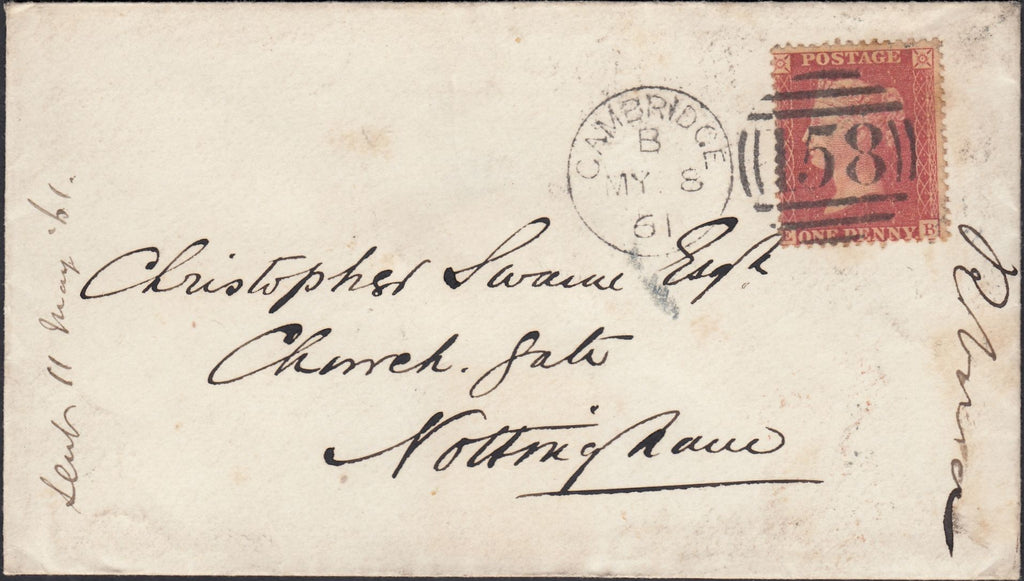 POSTAGE
CAMBRIDGE
B
MY 8
61
158
ONE PENNY B
Christopher Swann Esqr
Church. gate
Nottingham
Sent 11 May '61.